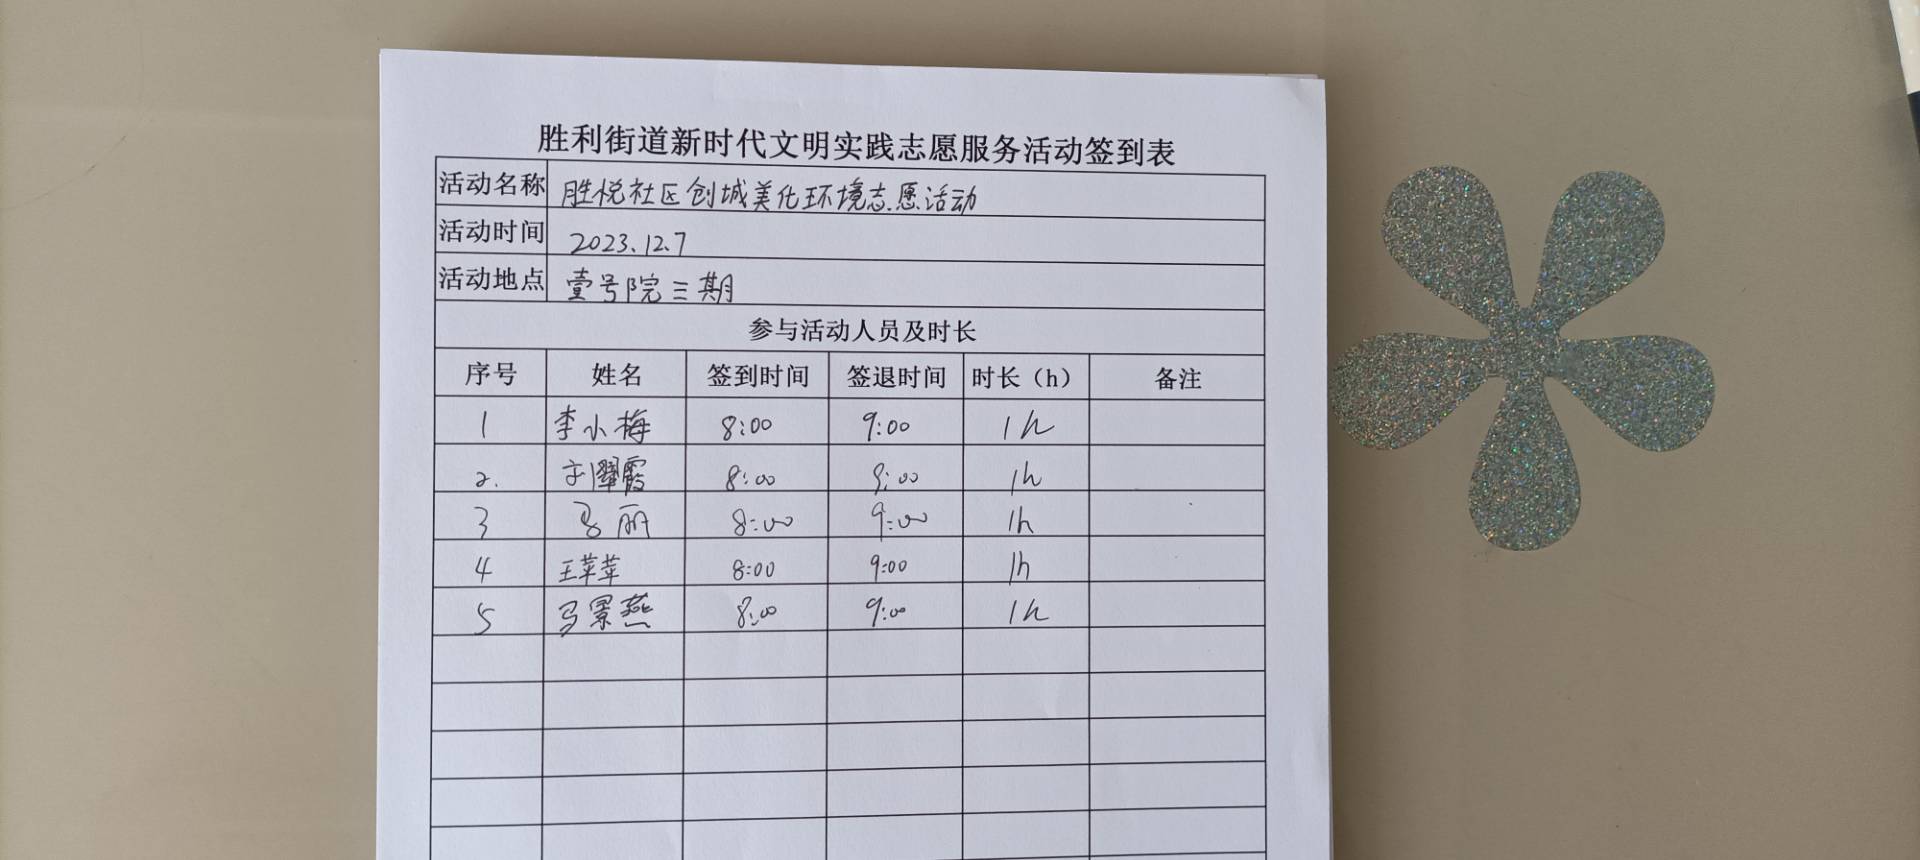 胜利街道新时代文明实践志愿服务活动签到表
活动名称 胜悦社区创城美化环境志愿活动
活动时间 2023.12.7
活动地点 壹号院三期
参与活动人员及时长
序号 姓名 签到时间 签退时间 时长（h） 备注
1 李小梅 8:00 9:00 1h
2. 霞 8:00 9:00 1h
3 丽 8:00 9:00 1h
4 王苹苹 8:00 9:00 1h
5 马景燕 8:00 9:00 1h